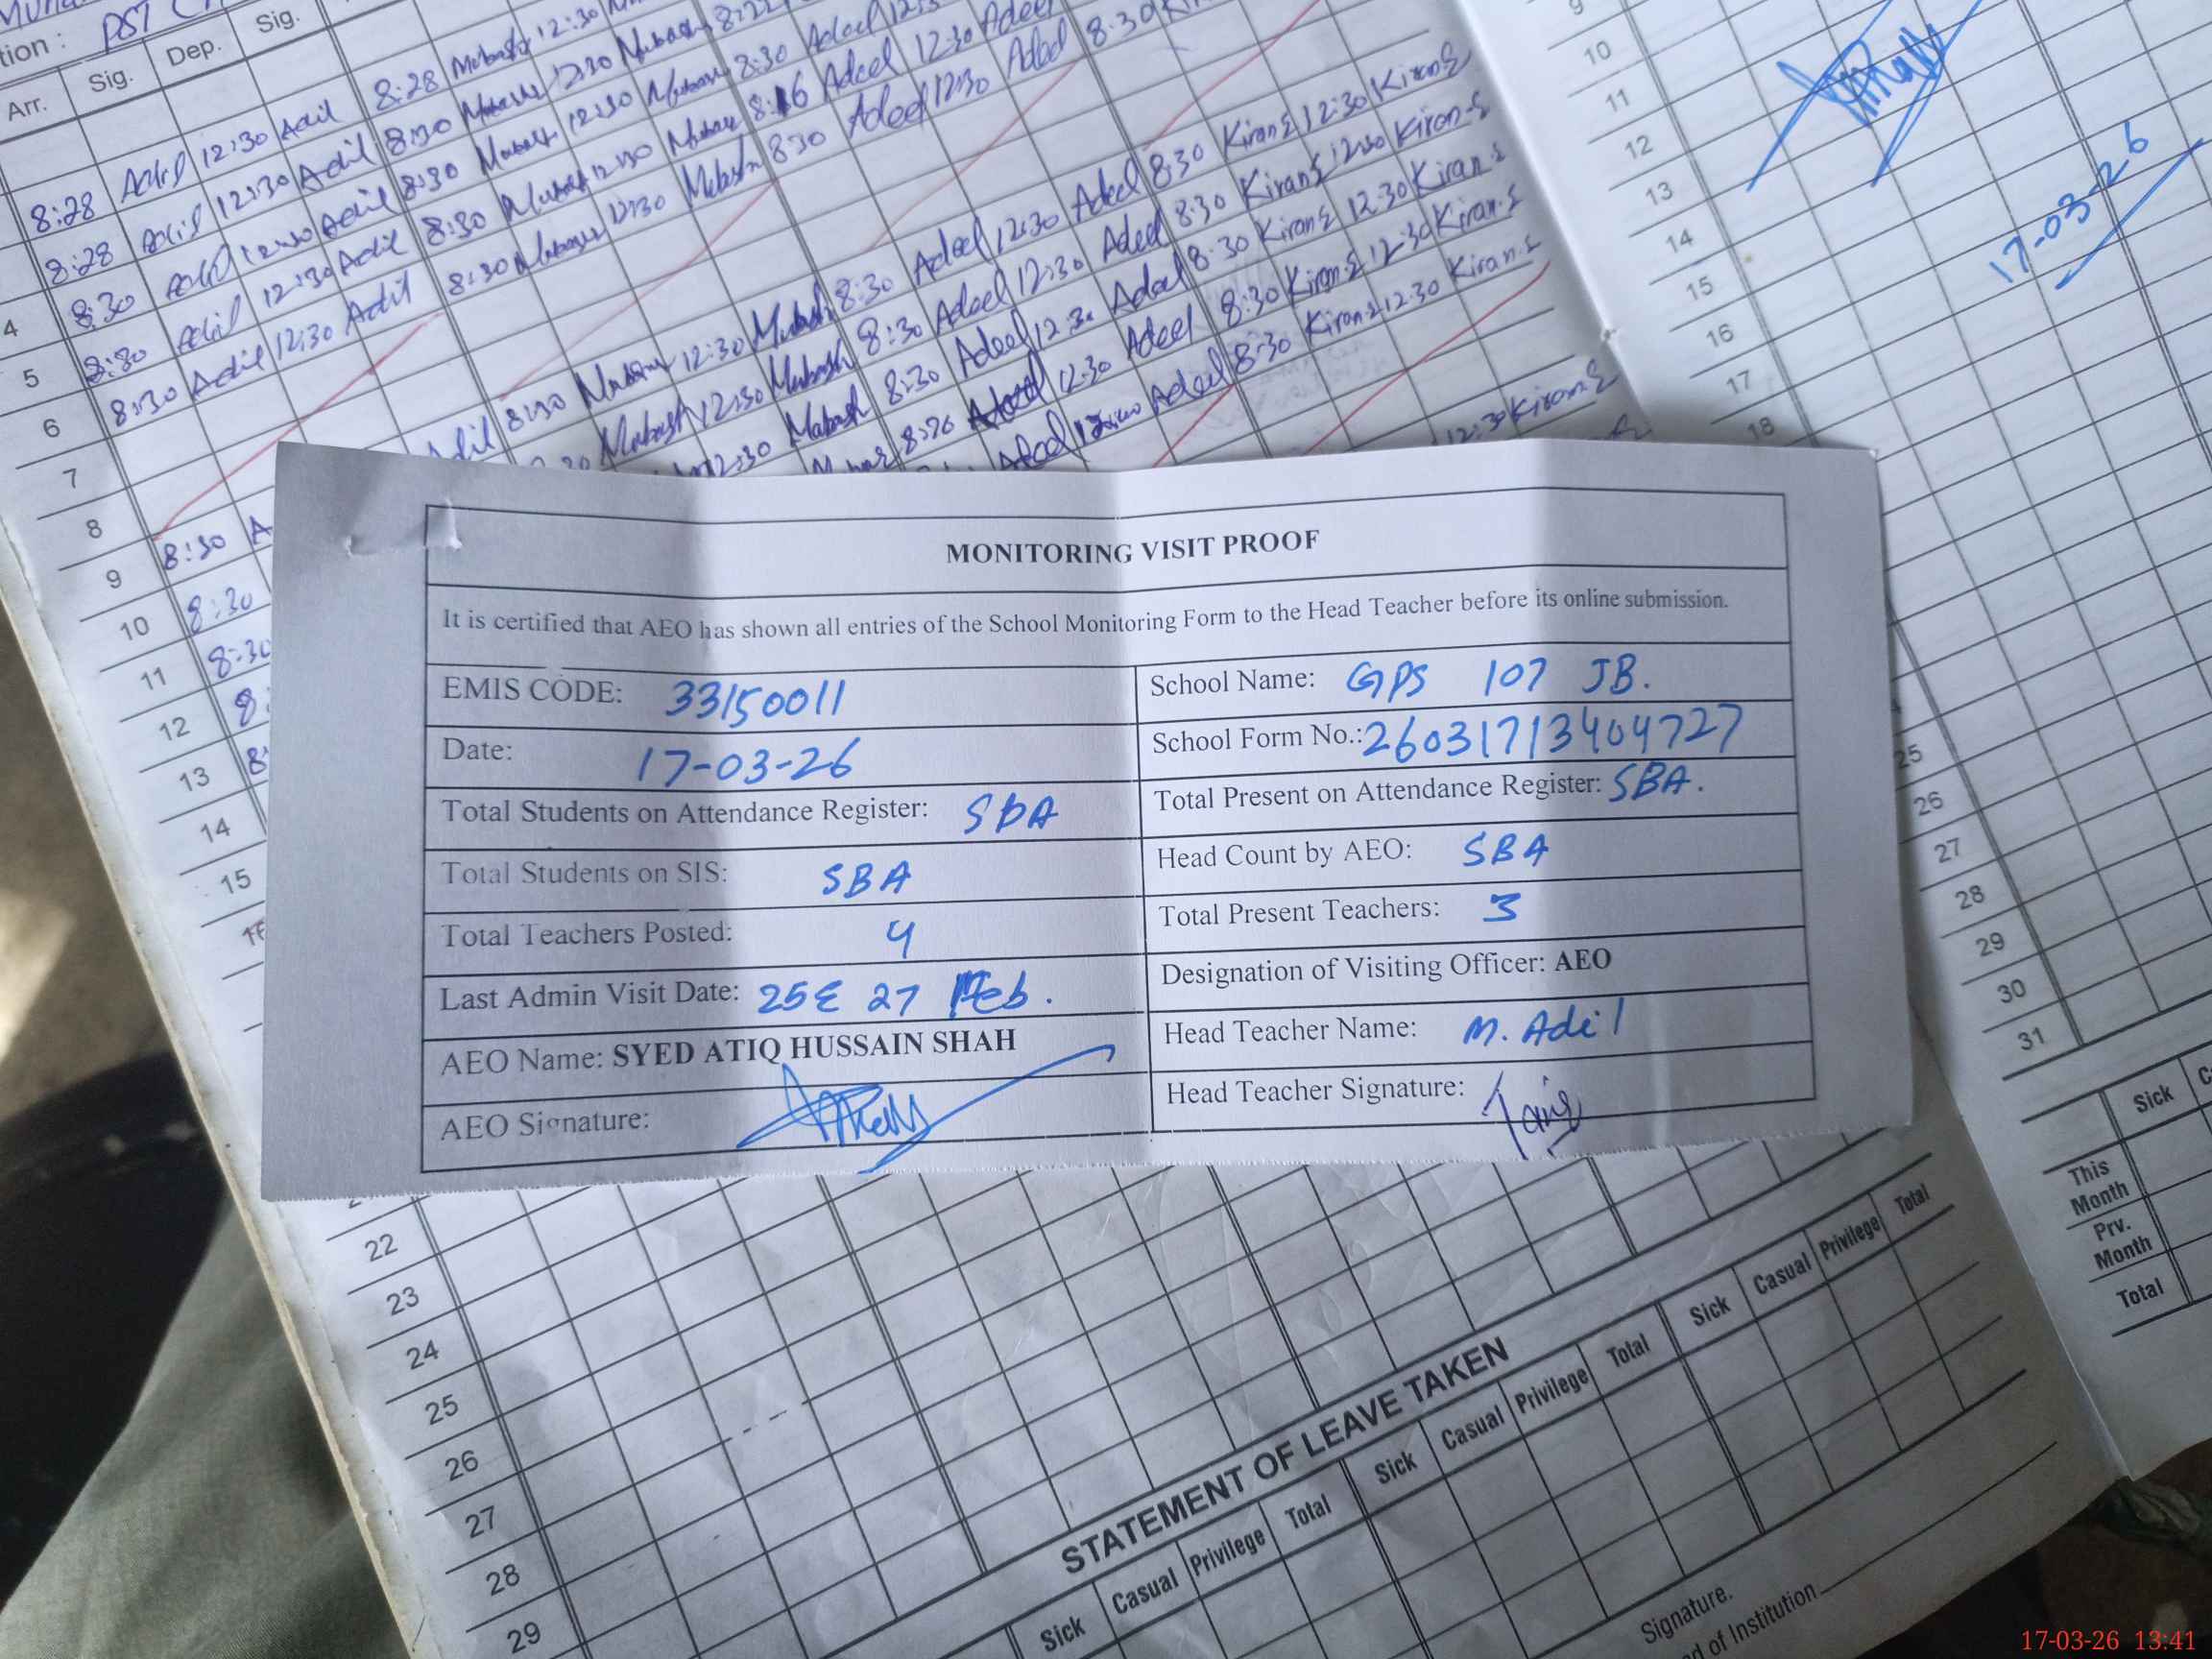 tion : PST
Arr. Sig. Dep. Sig.
8:28 Adil 12:30 Adil 8:28 Mubashr 12:30
8:28 Adil 12:30 Adil 8:30 Mubashr 12:30 Mubashr 8:22
8:30 Adil 12:30 Adil 8:30 Mubashr 12:30 Mubashr 8:30 Adeel 12:3
4 8:30 Adil 12:30 Adil 8:30 Mubashr 12:30 Mubashr 8:16 Adeel 12:30 Adeel
5 8:30 Adil 12:30 Adil 8:30 Mubashr 12:30 Mubashr 8:30 Adeel 12:30 Adeel 8:30
6
7
8
9 8:30 A
10 8:30
11 8:30
12 8:
13 8:
14
15
Adil 8:30 Mubashr 12:30 Mubashr 8:30 Adeel 12:30 Adeel 8:30 Kiran.S 12:30 Kiran.S
Mubashr 12:30 Mubashr 8:30 Adeel 12:30 Adeel 8:30 Kiran.S 12:30 Kiran.S
12:30 Mubashr 8:30 Adeel 12:30 Adeel 8:30 Kiran.S 12:30 Kiran.S
8:26 Adeel 12:30 Adeel 8:30 Kiran.S 12:30 Kiran.S
Adeel Adeel 8:30 Kiran.S 12:30 Kiran.S
12:30 Kiran.S
9
10
11
12
13
14
15
16
17
18
17-03-26
MONITORING VISIT PROOF
It is certified that AEO has shown all entries of the School Monitoring Form to the Head Teacher before its online submission.
EMIS CODE: 33150011
School Name: GPS 107 JB.
Date: 17-03-26
School Form No.: 26031713404727
Total Students on Attendance Register: SBA
Total Present on Attendance Register: SBA.
Total Students on SIS: SBA
Head Count by AEO: SBA
Total Teachers Posted: 4
Total Present Teachers: 3
Last Admin Visit Date: 25 & 27 Feb.
Designation of Visiting Officer: AEO
AEO Name: SYED ATIQ HUSSAIN SHAH
Head Teacher Name: M. Adil
AEO Signature:
Head Teacher Signature:
25
26
27
28
29
30
31
22
23
24
25
26
27
28
29
STATEMENT OF LEAVE TAKEN
Sick Casual Privilege Total Sick Casual Privilege Total Sick Casual Privilege Total
Sick
This Month
Prv. Month
Total
Signature.
d of Institution
17-03-26 13:41